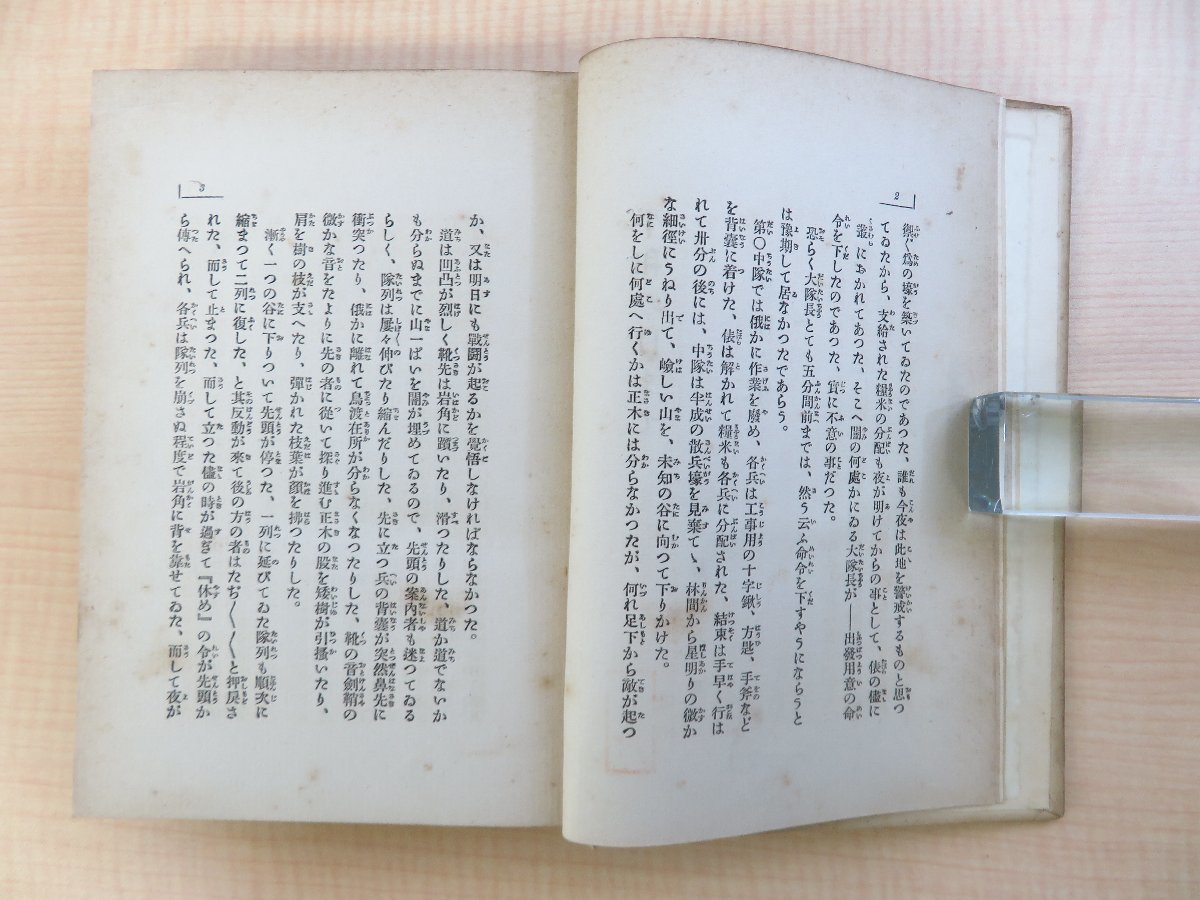 2
禦ぐ爲の壕を築いてゐたのであつた、誰も今夜は此地を警戒するものと思つ
てゐたから、支給された糧米の分配も夜が明けてからの事として、俵の儘に
叢におかれてあつた、そこへ闇の何處かにゐる大隊長が——出發用意の命
令を下したのであつた、實に不意の事だつた。
恐らく大隊長とても五分間前までは、然う云ふ命令を下すやうにならうと
は豫期して居なかつたであらう。
第〇中隊では俄かに作業を廢め、各兵は工事用の十字鍬、方匙、手斧など
を背嚢に着けた、俵は解かれて糧米も各兵に分配された、結束は手早く行は
れて卅分の後には、中隊は半成の散兵壕を見棄てゝ、林間から星明りの微か
な細徑にうねり出て、嶮しい山を、未知の谷に向つて下りかけた。
何をしに何處へ行くかは正木には分らなかつたが、何れ足下から敵が起つ
3
か、又は明日にも戰鬪が起るかを覺悟しなければならなかつた。
道は凹凸が烈しく靴先は岩角に躓いたり、滑つたりした、道か道でないか
も分らぬまでに山一ぱいを闇が埋めてゐるので、先頭の案內者も迷つてゐる
らしく、隊列は屢々伸びたり縮んだりした、先に立つ兵の背嚢が突然鼻先に
衝突つたり、俄かに離れて鳥渡在所が分らなくなつたりした、靴の音劍鞘の
微かな音をたよりに先の者に從いて探り進む正木の股を矮樹が引搔いたり、
肩を樹の枝が支へたり、彈かれた枝葉が顏を拂つたりした。
漸く一つの谷に下りついて先頭が停つた、一列に延びてゐた隊列も順次に
縮まつて二列に復した、と其反動が來て後の方の者はたぢ〳〵〳〵と押戾さ
れた、而して止まつた、而して立つた儘の時が過ぎて『休め』の令が先頭か
ら傳へられ、各兵は隊列を崩さぬ程度で岩角に背を靠せてゐた、而して夜が